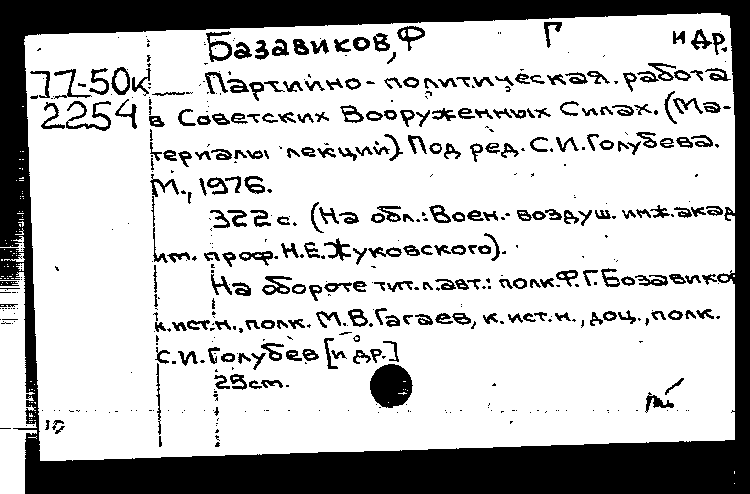 Базавиков, Ф Г и др.
77-50к Партийно-политическая работа
2254 в Советских Вооруженных Силах. (Ма-
териалы лекций). Под ред. С.И.Голубева.
М., 1976.
322 с. (На обл.: Воен.-воздуш. инж. акад
им. проф. Н.Е.Жуковского).
На обороте тит.л.авт.: полк. Ф.Г.Бозавиков
к.ист.н., полк. М.В.Гагаев, к.ист.н., доц., полк.
С.И.Голубев [и др.]
25 cm.
10